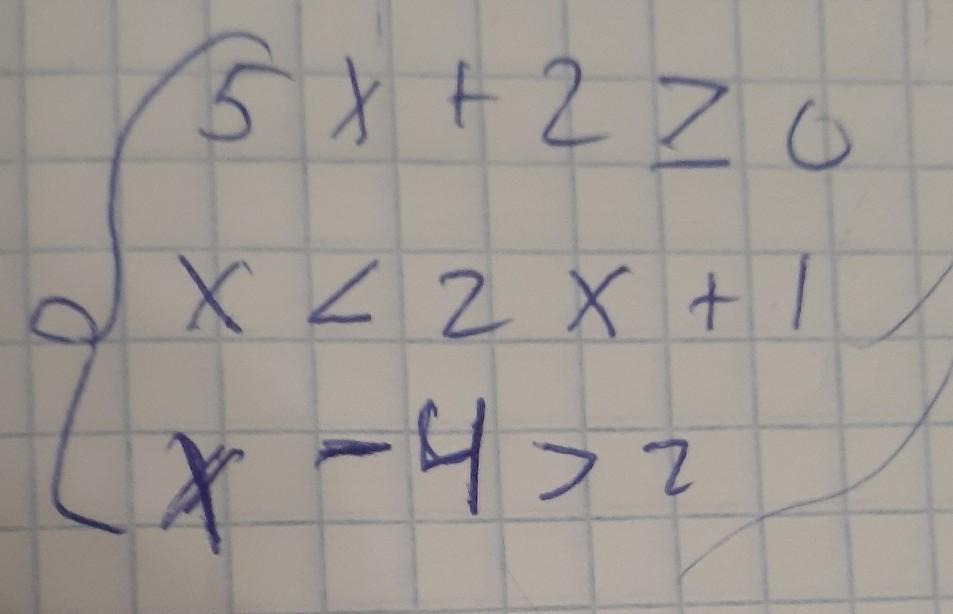 5x + 2 ≥ 0
x < 2x + 1
x - 4 > 2